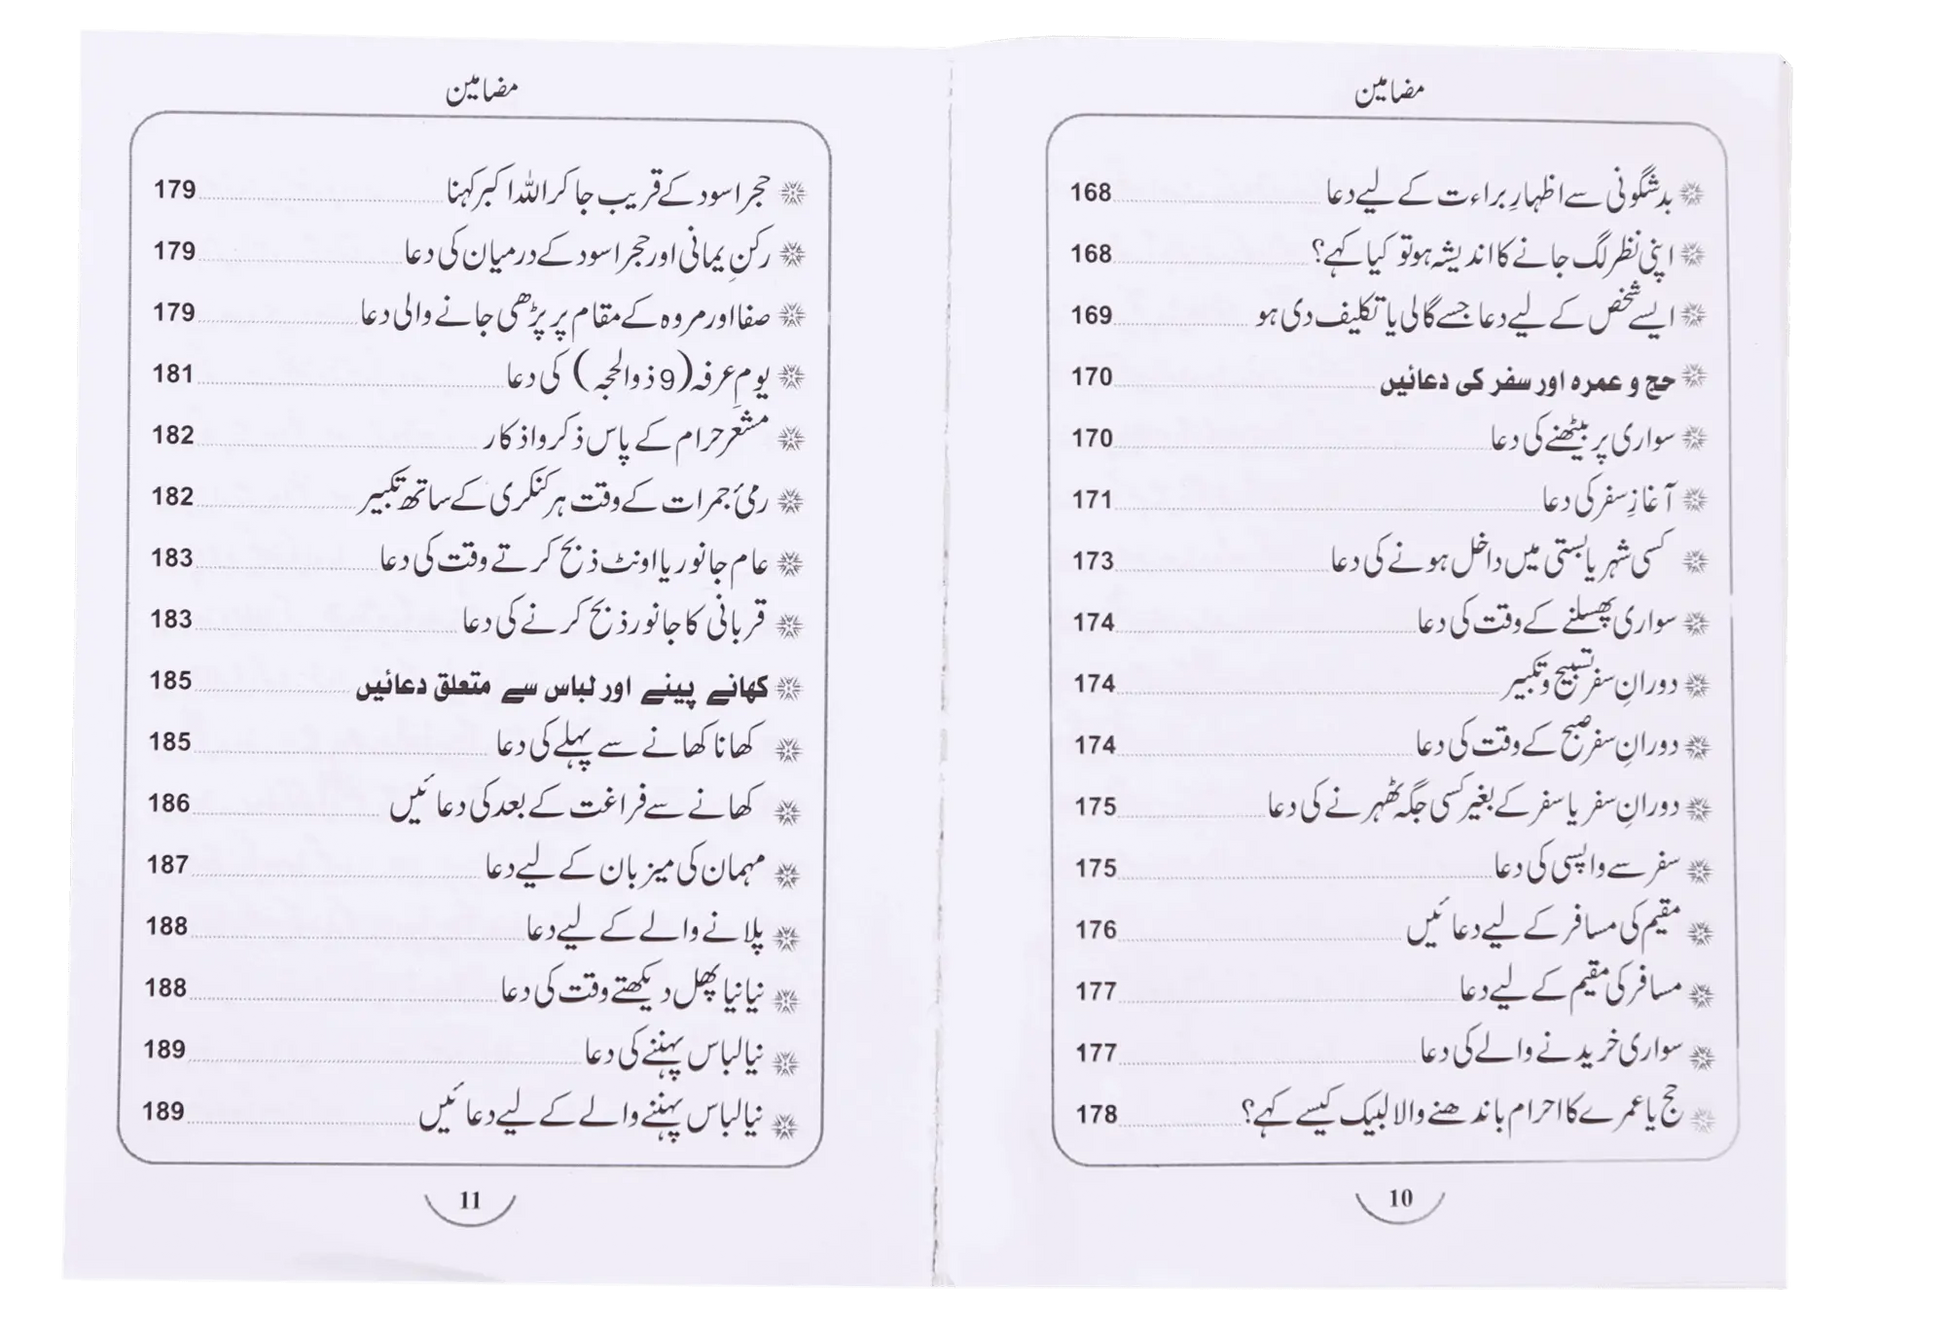 مضامین
بدشگونی سے اظہارِ براءت کے لیے دعا 168
اپنی نظر لگ جانے کا اندیشہ ہو تو کیا کہے؟ 168
ایسے شخص کے لیے دعا جسے گالی یا تکلیف دی ہو 169
حج و عمرہ اور سفر کی دعائیں 170
سواری پر بیٹھنے کی دعا 170
آغازِ سفر کی دعا 171
کسی شہر یا بستی میں داخل ہونے کی دعا 173
سواری پھسلنے کے وقت کی دعا 174
دورانِ سفر تسبیح و تکبیر 174
دورانِ سفر صبح کے وقت کی دعا 174
دورانِ سفر یا سفر کے بغیر کسی جگہ ٹھہرنے کی دعا 175
سفر سے واپسی کی دعا 175
مقیم کی مسافر کے لیے دعائیں 176
مسافر کی مقیم کے لیے دعا 177
سواری خریدنے والے کی دعا 177
حج یا عمرے کا احرام باندھنے والا لبیک کیسے کہے؟ 178
10
مضامین
حجر اسود کے قریب جا کر اللہ اکبر کہنا 179
رکنِ یمانی اور حجر اسود کے درمیان کی دعا 179
صفا اور مروہ کے مقام پر پڑھی جانے والی دعا 179
یومِ عرفہ (9 ذوالحجہ) کی دعا 181
مشعرِ حرام کے پاس ذکر و اذکار 182
رمیٔ جمرات کے وقت ہر کنکری کے ساتھ تکبیر 182
عام جانور یا اونٹ ذبح کرتے وقت کی دعا 183
قربانی کا جانور ذبح کرنے کی دعا 183
کھانے پینے اور لباس سے متعلق دعائیں 185
کھانا کھانے سے پہلے کی دعا 185
کھانے سے فراغت کے بعد کی دعائیں 186
مہمان کی میزبان کے لیے دعا 187
پلانے والے کے لیے دعا 188
نیا نیا پھل دیکھتے وقت کی دعا 188
نیا لباس پہننے کی دعا 189
نیا لباس پہننے والے کے لیے دعائیں 189
11